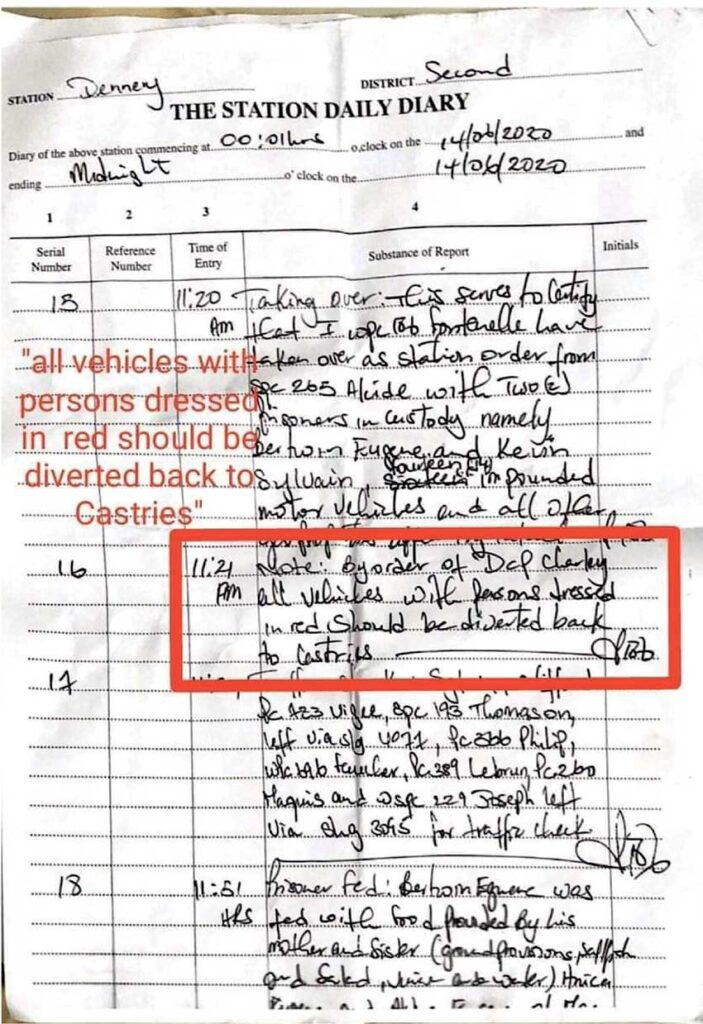 STATION Dennery DISTRICT Second
THE STATION DAILY DIARY
Diary of the above station commencing at 00:01hrs o,clock on the 14/06/2020 and
ending Midnight o' clock on the 14/06/2020
1 2 3 4
Serial Number Reference Number Time of Entry Substance of Report Initials
15 11:20 Am Taking over: This serves to Certify
that I wpc fontenelle have
taken over as station order from
spc 265 Alcide with Two(2)
Prisoners in custody namely
Berthom Eugene and Kervin
Sylvain, fourteen (14) impounded
motor vehicles and all other
"all vehicles with
persons dressed
in red should be
diverted back to
Castries"
16 11:21 Note: By order of Dcp Charley
all vehicles with Persons dressed
in red should be diverted back
to Castries
17
Pc 423 Vigee, spc 193 Thomason,
left via slg 4077, Pc 366 Philip,
Pc 389 Lebrun, Pc 260
Maquis and wspc 229 Joseph left
via slg 3045 for traffic check
18 11:51 HRS Prisoner Fed: Berthom Eugene was
fed with food provided By his
mother and sister (ground provisions,
and water)